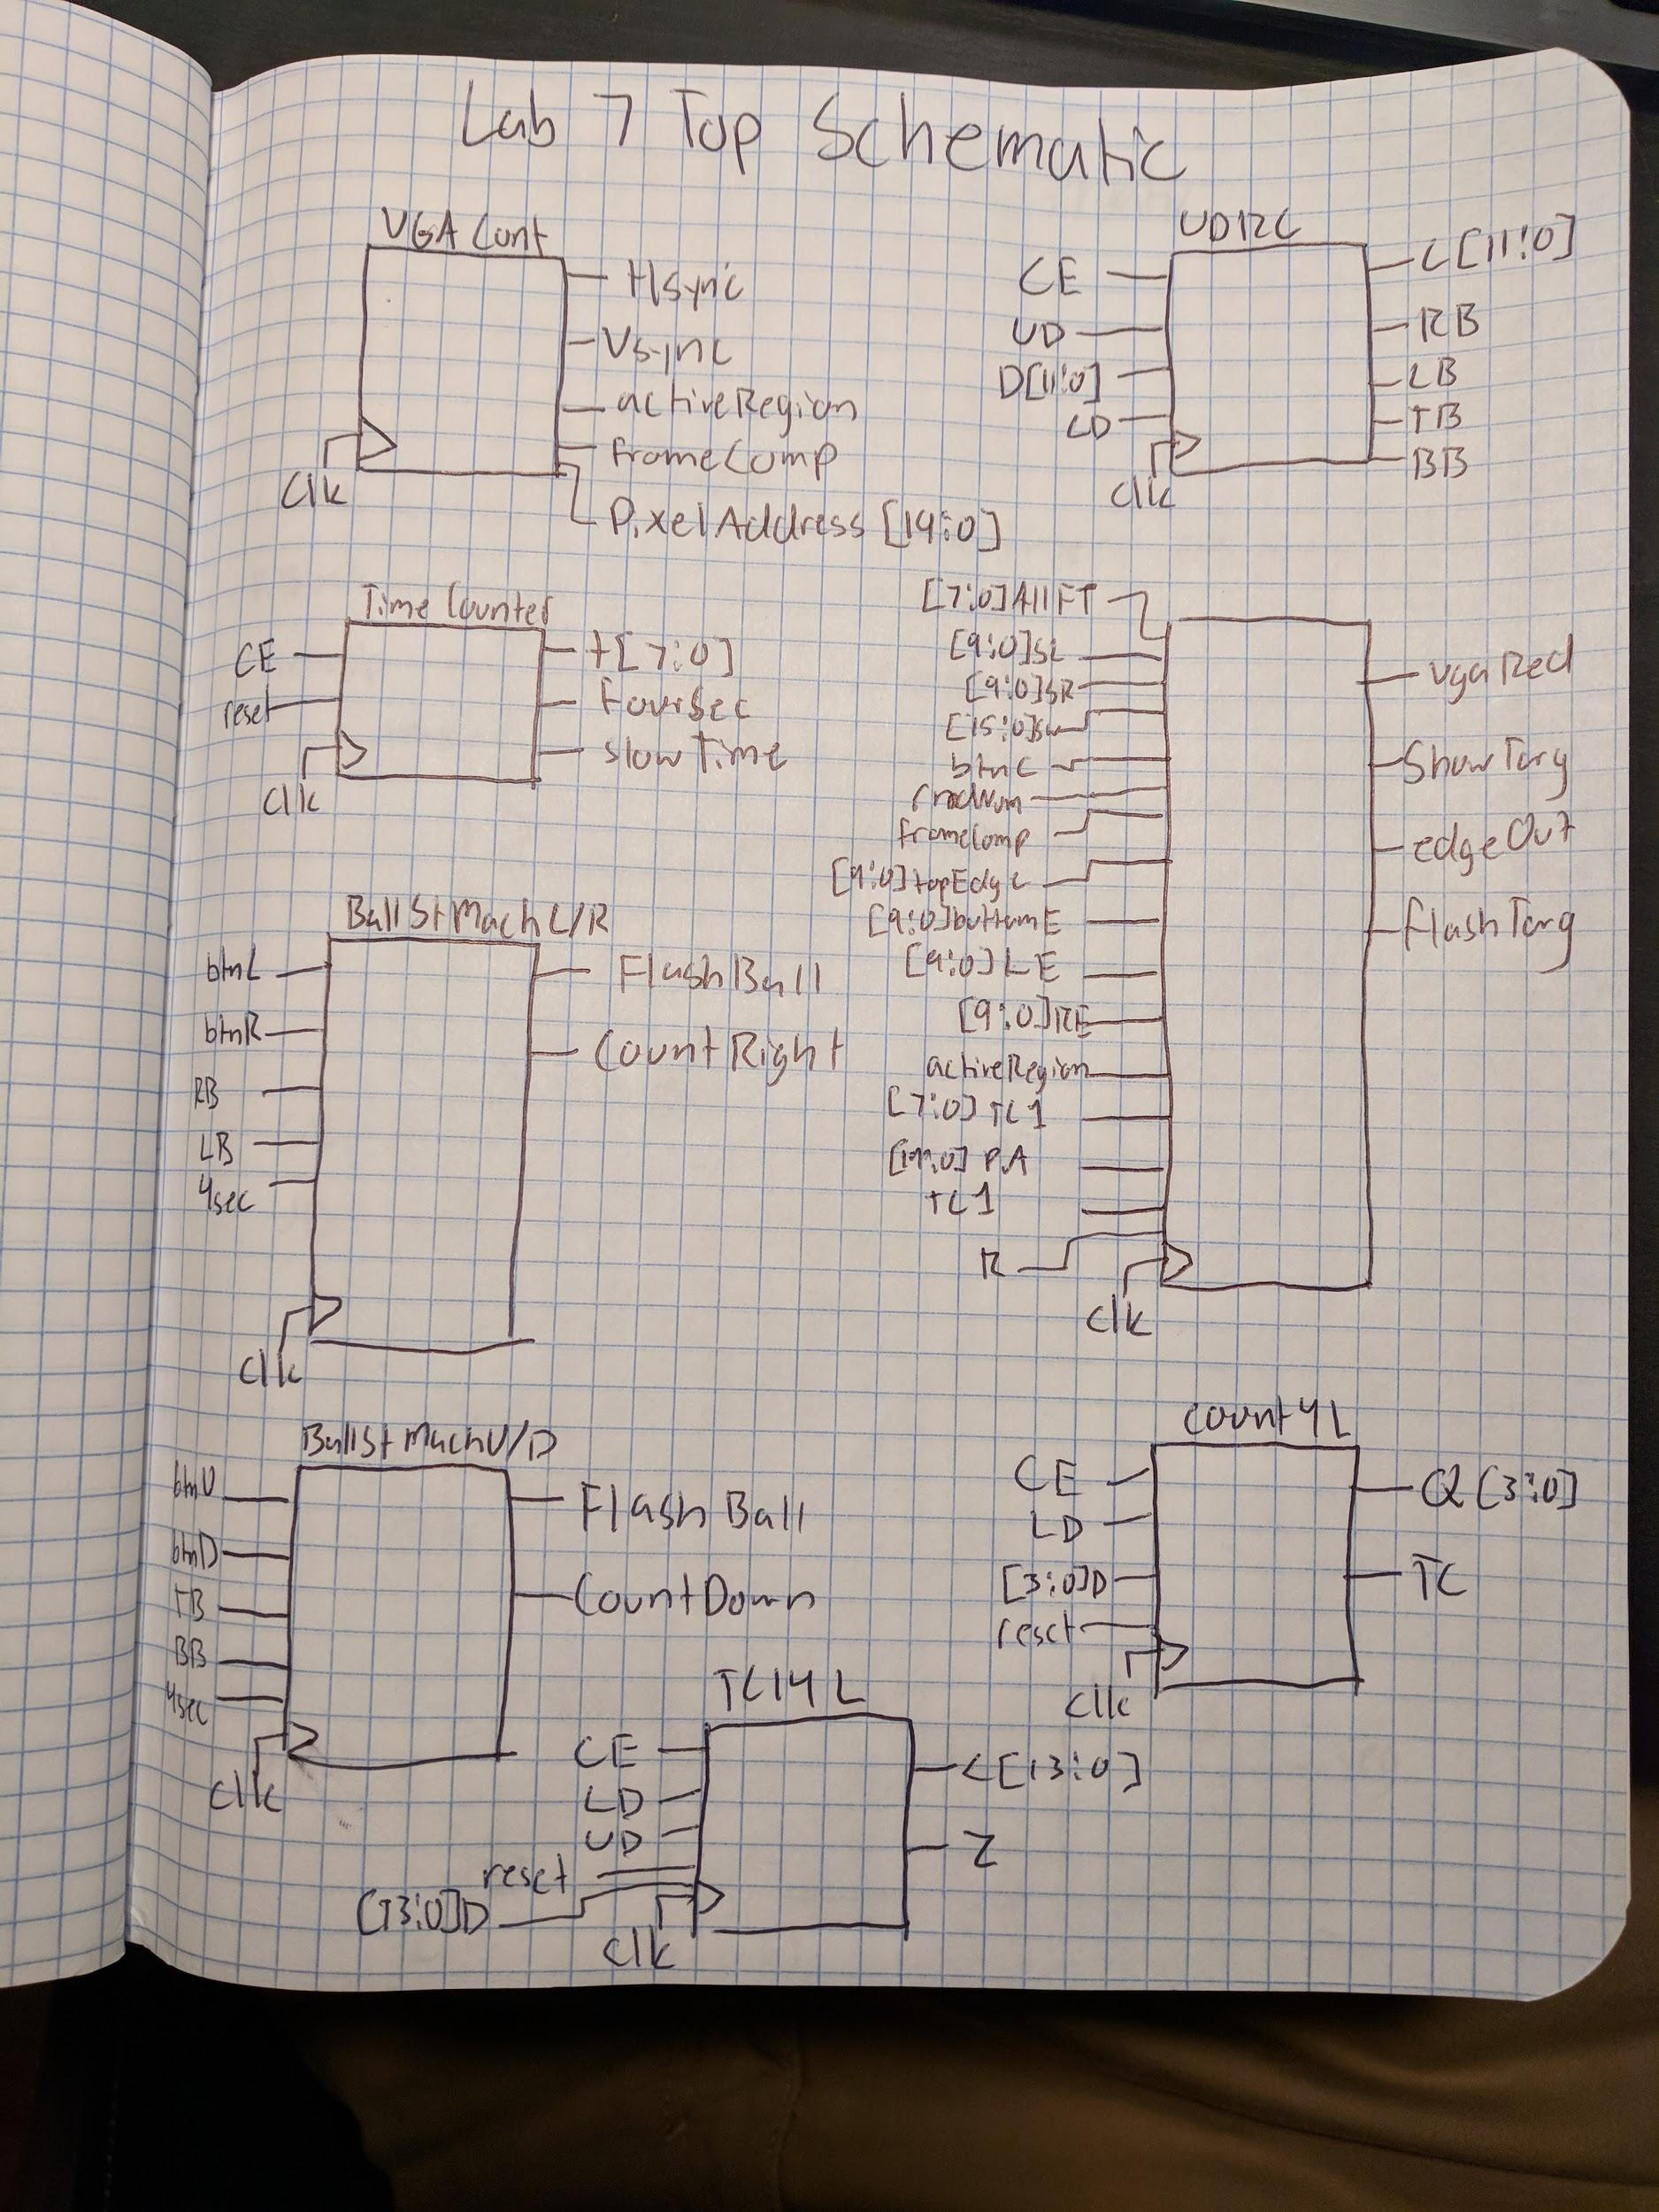 Lab 7 Top Schematic
VGA Cont
Hsync
Vsync
activeRegion
frameComp
PixelAddress [19:0]
Clk
UD12C
CE
UD
D[11:0]
LD
Clk
C[11:0]
RB
LB
TB
BB
Time Counter
CE
reset
Clk
t[7:0]
FourSec
slowTime
[7:0]AllFT
[9:0]SL
[9:0]SR
[15:0]sw
btnC
rndNum
frameComp
[9:0]topEdge
[9:0]bottomE
[9:0]LE
[9:0]RE
activeRegion
[7:0]TC1
[19:0] PA
TC1
R
Clk
vgaRed
ShowTarg
edgeOut
FlashTarg
BallStMachL/R
btnL
btnR
RB
LB
4sec
Clk
FlashBall
CountRight
BallStMachU/D
btnU
btnD
TB
BB
4sec
Clk
FlashBall
CountDown
Count4L
CE
LD
[3:0]D
reset
Clk
Q[3:0]
TC
TC14L
CE
LD
UD
reset
[13:0]D
Clk
C[13:0]
Z